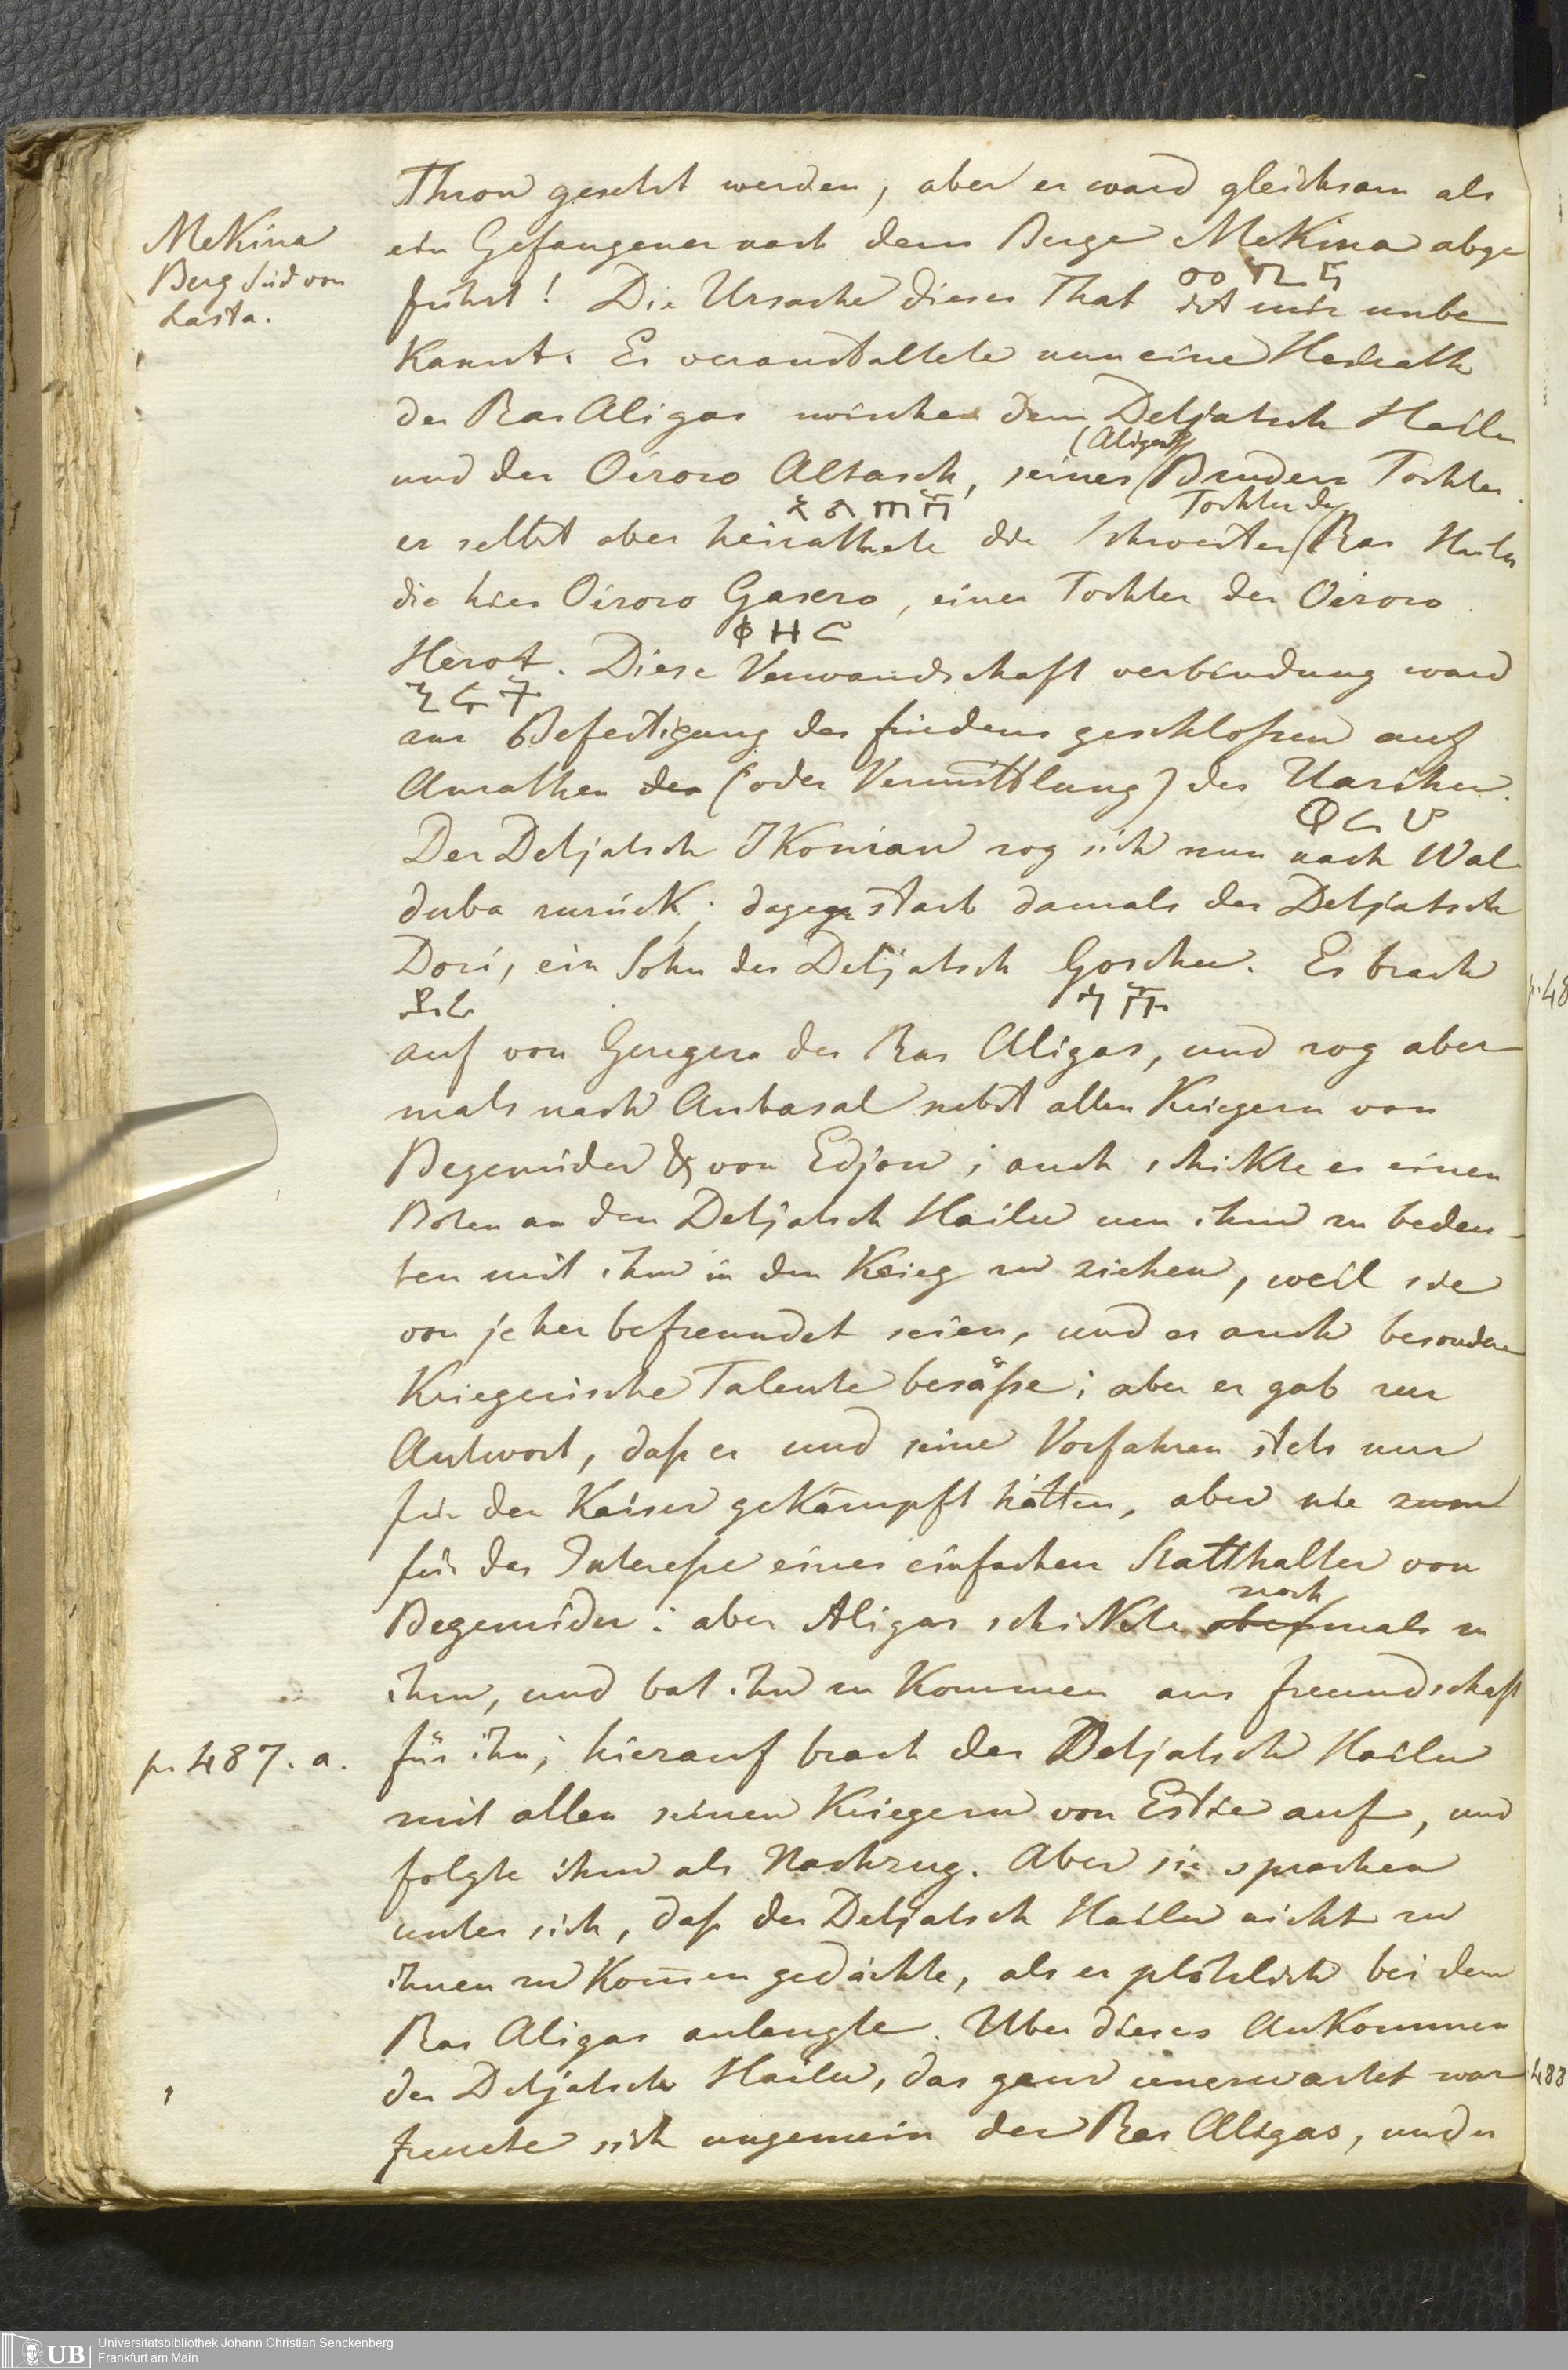 Thron gesetzt werden, aber er ward gleichsam als
MeKina
Berg Süd von
Lasta.
ein Gefangener nach dem Berge MeKina abge
führt! Die Ursache dieser That ist mir unbe
Kannt. Es veranstaltete nun eine Heirath
der Ras Aligas zwischen dem Detjatsch Hailu
(Aligas)
und der Oizoro Altasch, seines Bruders Tochter.
Tochter des
er selbst aber heirathete die Schwester Ras Hailu
die hies Oizoro Gasero, einer Tochter der Oizoro
ቀዘር
Herot. Diese Verwandschaft verbindung ward
ኂሩት
zur Befestigung des friedens geschloßen auf
Anrathen der (oder Vermittlung) des Uarihu.
Der Detjatsch IKonian zog sich nun nach Wal
duba zurück; dagegen starb damals der Detjatsch
Dori, ein Sohn des Detjatsch Goschu. Es brach
ዶሪ ጎሹ
auf von Geregera der Ras Aligas, und zog aber
mals nach Anbasal nebst allen Kriegern von
Begemider & von Edjou; auch schikte er einen
Boten an den Detjatsch Hailu um ihm zu bedeu
ten mit ihm in den Krieg zu ziehen, weil sie
von jeher befreundet seien, und er auch besondere
Kriegerische Talente besäße; aber er gab zur
Antwort, daß er und seine Vorfahren stets nur
für den Kaiser geKämpft hätten, aber nie zum
für das Intereße eines einfachen Statthalter von
noch
Begemider: aber Aligas schiKete abermals zu
ihm, und bat ihn zu Kommen aus freundschaft
p. 487. a.
für ihn; hierauf brach der Detjatsch Hailu
mit allen seinen Kriegern von Estie auf, und
folgte ihm als Nachzug. Aber sie sprachen
unter sich, daß der Detjatsch Hailu nicht zu
ihnen zu Kom̄en gedächte, als er plötzlich bei dem
Ras Aligas anlangte. Uber dieses AnKommen
des Detjatsch Hailu, das ganz unerwartet war
488
freute sich ungemein der Ras Aligas, und er
UB
Universitätsbibliothek Johann Christian Senckenberg
Frankfurt am Main